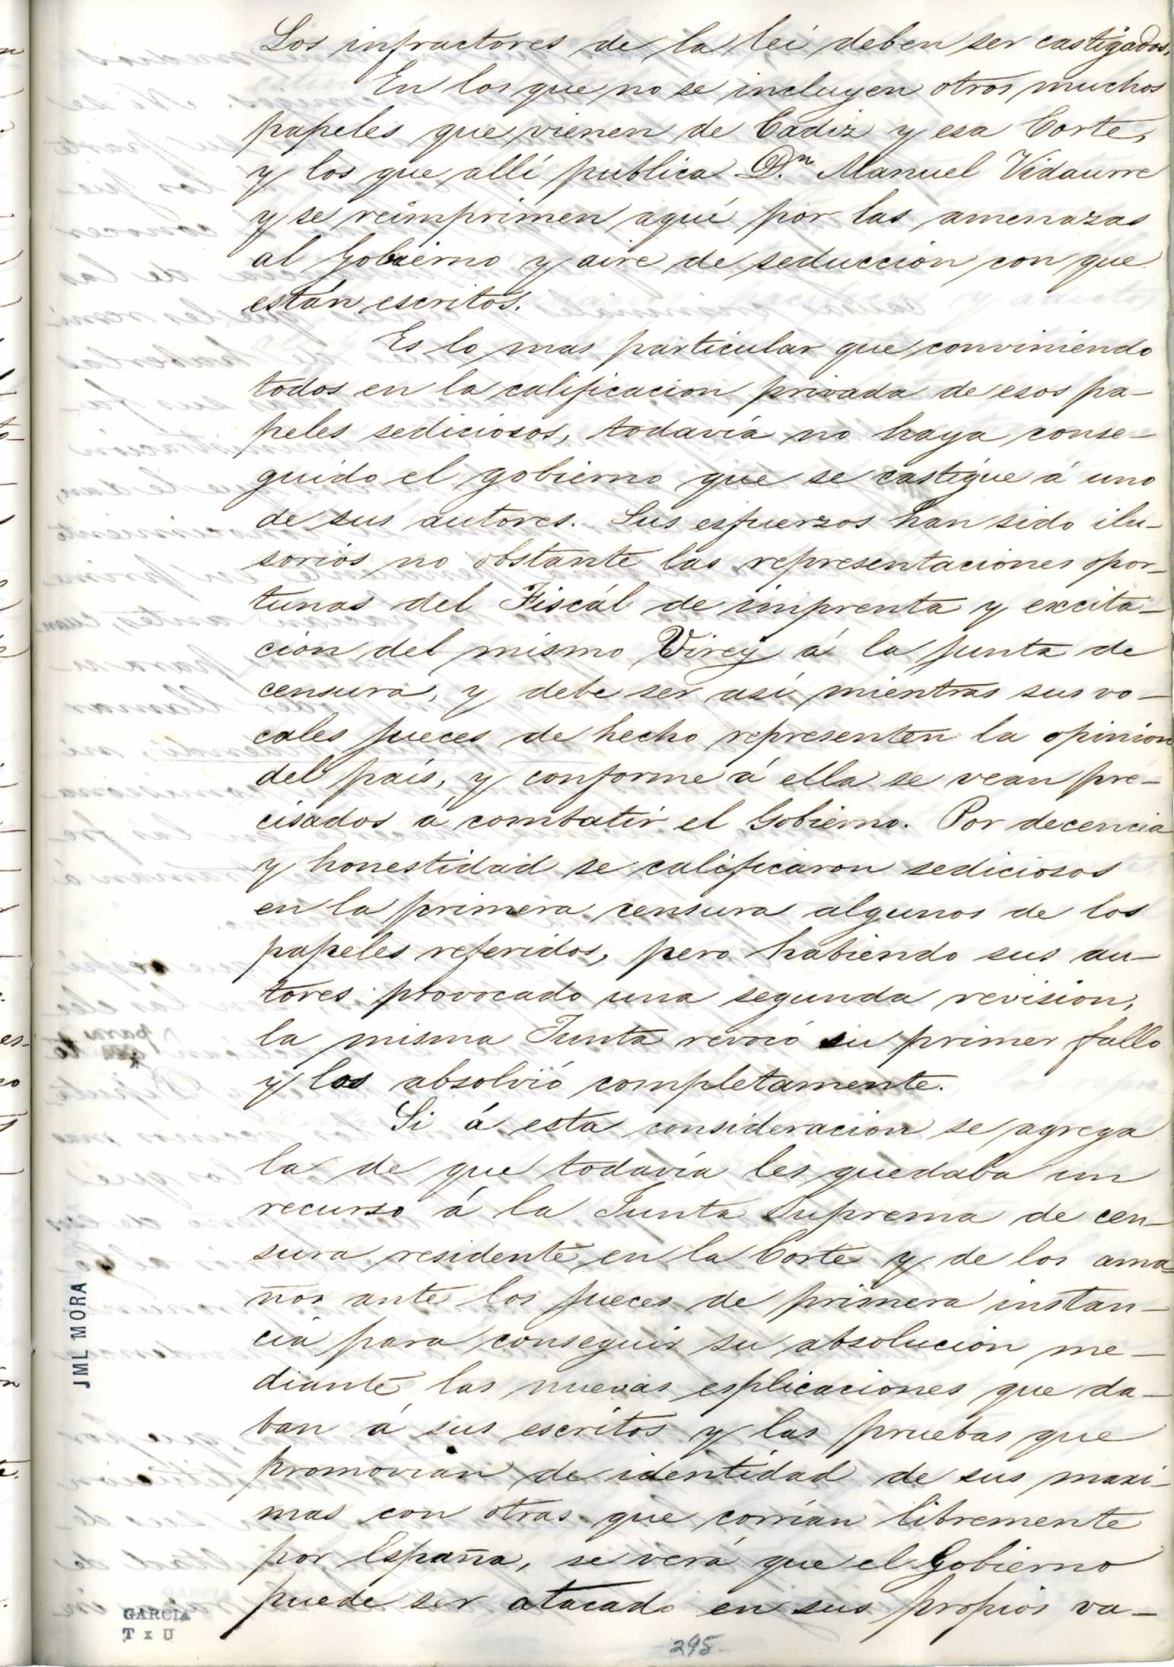 Los infractores de la lei deben ser castigados.
En los que no se incluyen otros muchos
papeles que vienen de Cadiz y esa Corte,
y los que allí publica D.n Manuel Vidaurre
y se reimprimen aquí por las amenazas
al Gobierno y aire de seducción con que
están escritos.
Es lo mas particular que conviniendo
todos en la calificacion privada de esos pa-
peles sediciosos, todavía no haya conse-
guido el gobierno que se castigue á uno
de sus autores. Sus esfuerzos han sido ilu-
sorios no obstante las representaciones opor-
tunas del Fiscál de imprenta y excita-
cion del mismo Virey á la junta de
censura, y debe ser así mientras sus vo-
cales jueces de hecho representen la opinion
del país, y conforme á ella se vean pre-
cisados á combatir el Gobierno. Por decencia
y honestidad se calificaron sediciosos
en la primera censura algunos de los
papeles referidos, pero habiendo sus au-
tores provocado una segunda revision,
la misma Junta revocó su primer fallo
y los absolvió completamente.
Si á esta consideracion se agrega
la de que todavía les quedaba un
recurso á la Junta Suprema de cen-
sura residente en la Corte y de los ama-
ños ante los jueces de primera instan-
cia para conseguir su absolucion me-
diante las nuevas esplicaciones que da-
ban á sus escritos y las pruebas que
promovian de identidad de sus maxi-
mas con otras que corrían libremente
por España, se verá que el Gobierno
puede ser atacado en sus propios va-
JML MORA
GARCIA
T x U
295